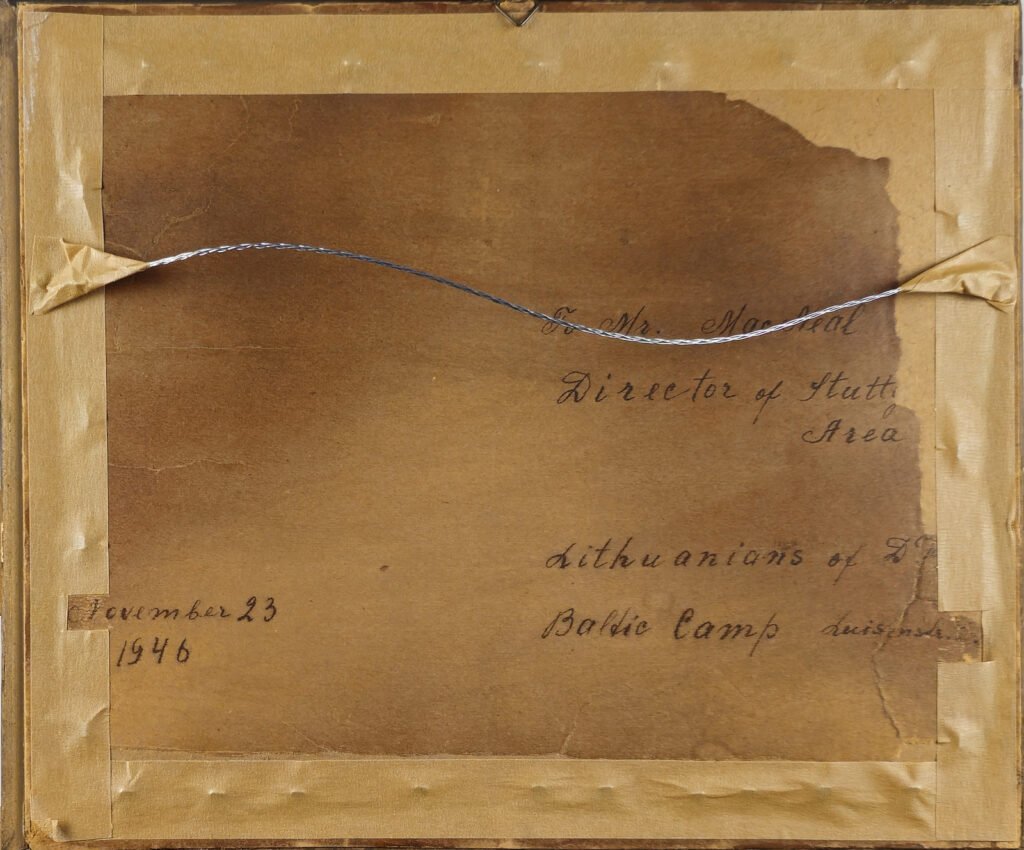 To Mr.
Director of Stutt
Area
Lithuanians of D
Baltic Camp Luisenstr.
November 23
1946